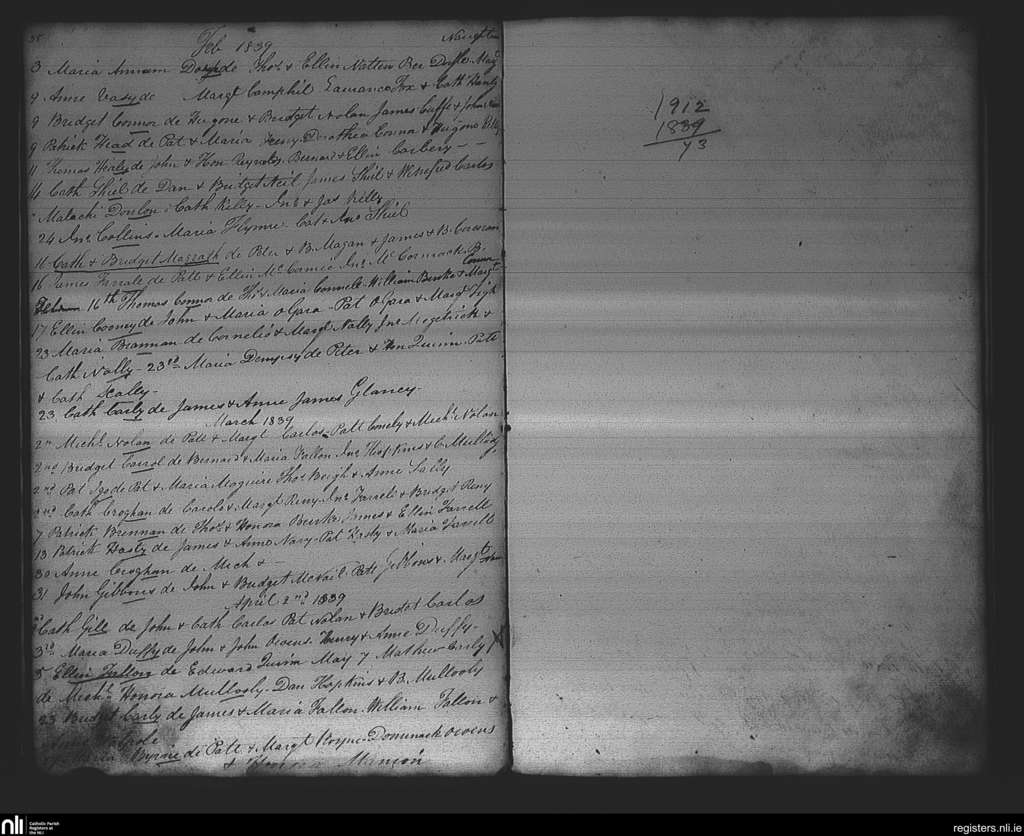 Feb 1839
3 Maria Annum de Thos & Ellin Natten Bee Duffe Magt
9 Anne Vasy de Margt Camphil Laurance Fox & Cath Hanly
9 Bridget Connor de Hugone & Bridget Nolan James Cuffe & John
9 Patrick Head de Pat & Maria Henry Dorothea Conna & Hugone
11 Thomas Healy de John & Hon Reynolds Bernard & Ellin Carbery - -
14 Cath Shiel de Dan & Bridget Neil James Shiel & Winefred Carlos
Malachi Donlon Cath Killy - Jno & Jas Killy
24 Jno Collins - Maria Flynne Cat & Ann Shiel
16 Cath & Bridget Magrath de Peter & B. Magan & James & B. Corcoran
16 James Farrale de Patt & Ellin Mc Jno McCormack B.
Connor
16th Thomas Connor de Thos Maria Connele William Burke & Margt
17 Ellin Cooney de John & Maria O Gara - Pat O Gara & Margt
23 Maria Brannan de Cornelio & Margt Nally Jno &
Cath Nally - 23rd Maria Dempsy de Peter & Hon Quinn - Patt
& Cath Scally -
23. Cath Carly de James & Anne James Glancy -
March 1839
2nd Michl Nolan de Patt & Margt Carlos - Patt Conely & Michl Nolan
2nd Bridget Carrol de Bernard & Maria Fallon Jno Hopkins & C Mullody
2nd Pat Igo de Pat & Maria Maguire Thos Beigh & Anne Lally
2nd Cath Croghan de Carolo & Margt Reny - Jno Farrell & Bridget Reny
7 Patrick Brennan de Thos & Honora Burke James & Ellin Farrell
13 Patrick Hasty de James & Anne Nary - Pat Hasty & Maria Farrell
30 Anne Croghan de Mich & -
31 John Gibbons de John & Bridget McNeil - Patt Gibbons & Margt
April 2nd 1839
Cath Gill de John & Cath Carlos Pat Nolan & Bridet Carlos
3rd Maria Duffy de John & John Owens Henry & Anne Duffy -
5 Ellin Fallon de Edward Quinn May 7 Mathew Carly X
de Michl Honora Mulloly - Dan Hopkins & B. Mullooly
23 Bridget Carly de James & Maria Fallon William Fallon &
Maria Byrne de Patt & Margt Boyne - Dominack Owens
& Mannon
1912
1839
73
nli Catholic Parish Registers at the NLI
registers.nli.ie